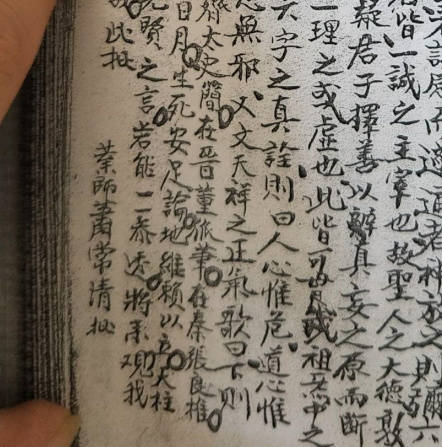 者神
皆一誠之主宰也故聖人之大德敦
疑君子擇善以辨真妄之原而斷
一理之或虛也此皆可見
六字之真詮則曰人心惟危道心惟
思無邪又文天祥之正氣歌曰下則
齊太史簡在晉董狐筆在秦張良椎
日月生死安足論地維賴以立天柱
先賢之言若能一一參透將來觀我
此批
業師蕭常清批